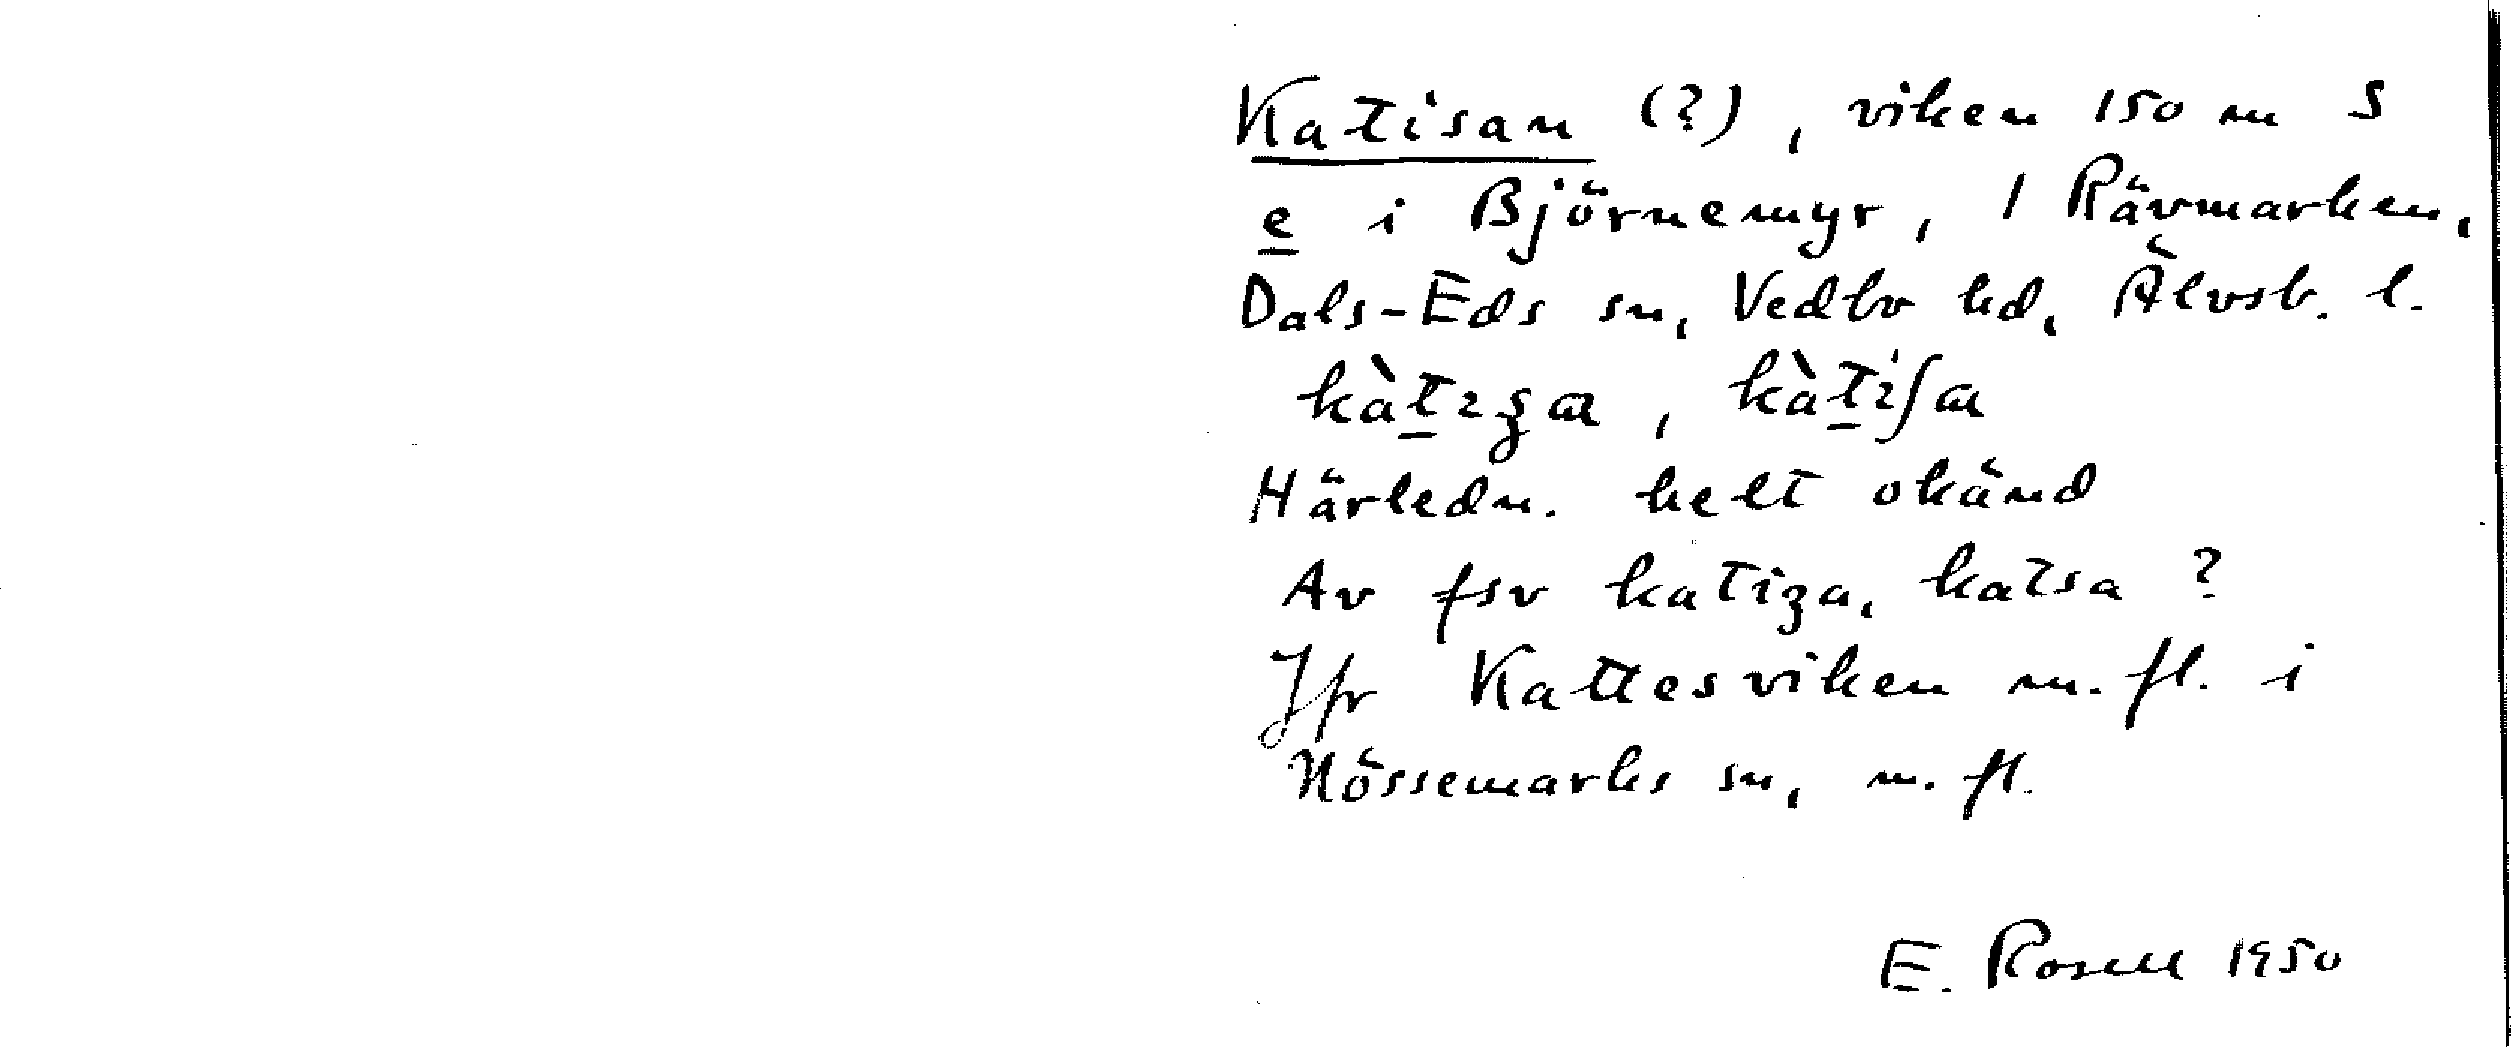 Katisan (?), viken 150 m S
e i Björnemyr, 1 Rävmarken,
Dals-Eds sn, Vedbo hd, Älvsb. l.
Härledn. helt okänd
Av fsv katiza, katsa ?
Jfr Kattesviken m. fl. i
Nössemarks sn, m. fl.
E. Rosell 1950